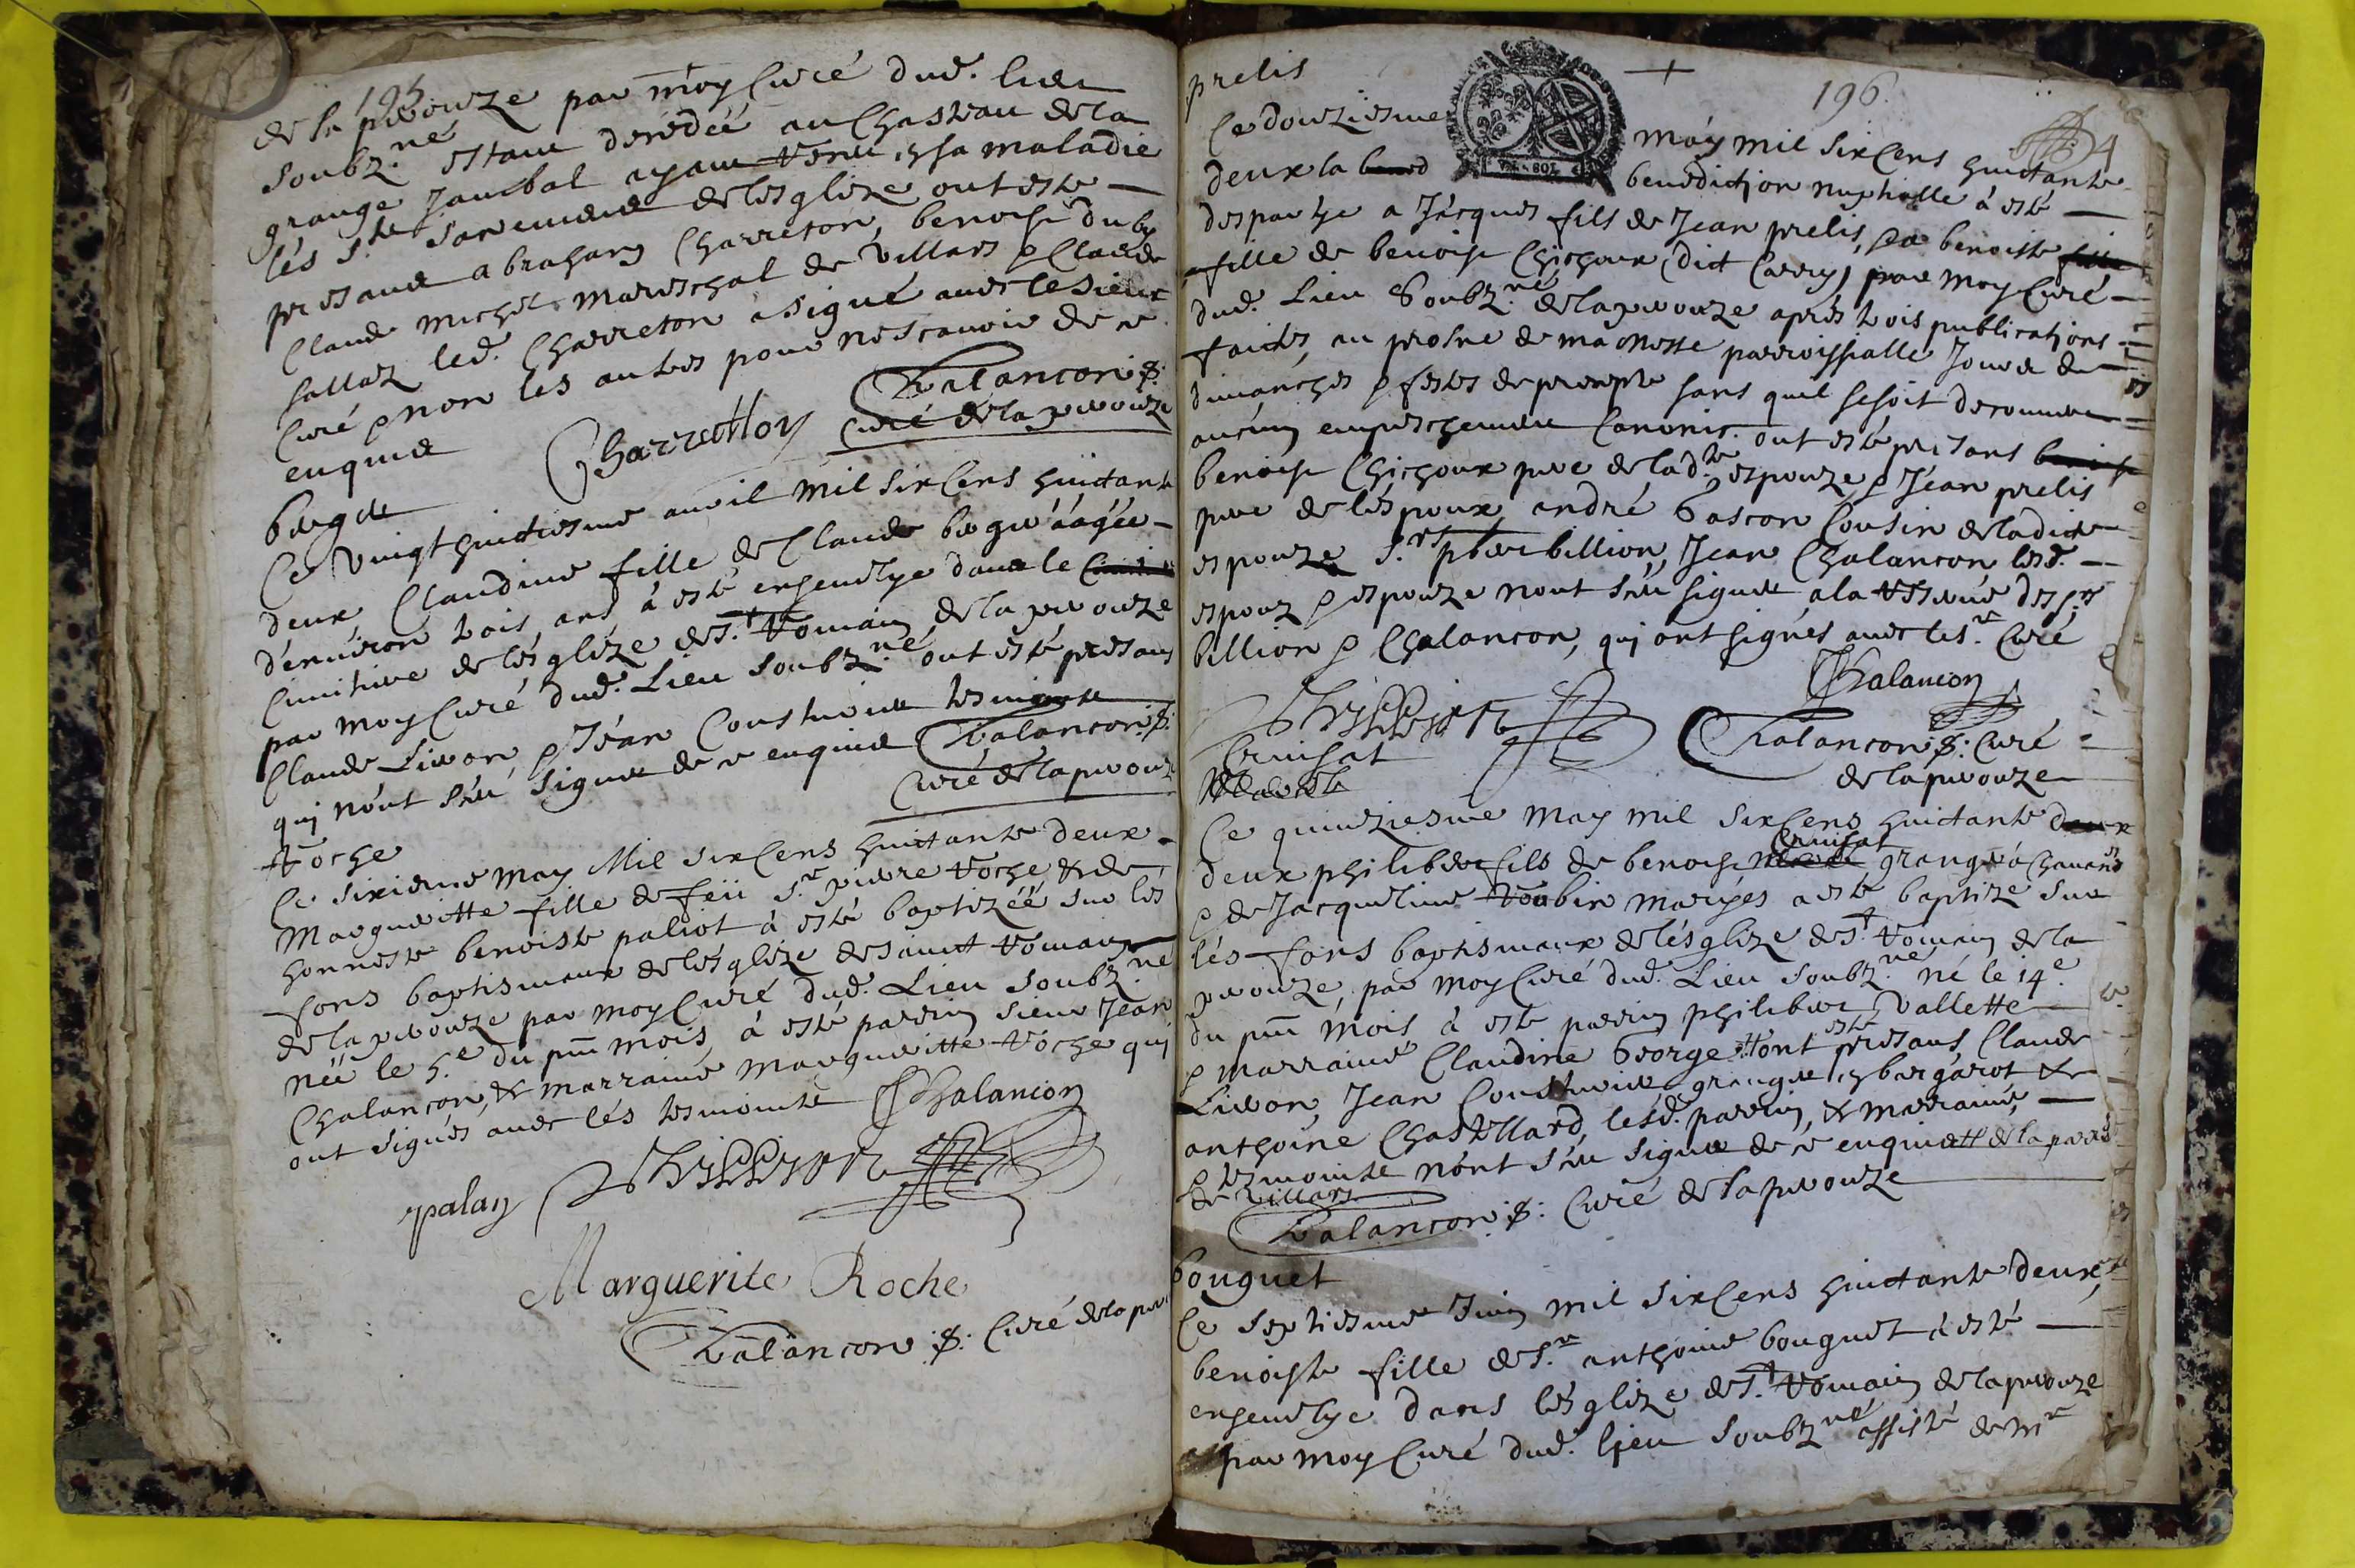 195
de la peyrouze par moy Curé dud. lieu
soubz.né estant decedée au Chasteau de la
grange Jambal ayant receu en sa maladie
lés S.ts Sacremens de lésglize ont esté
presans abraham Charreton, benoist duby
Claude michel mareschal de villars & Claude
sallaz led. Charreton a signé avec le sieur
Curé & non les autres pour ne scavoir de ce
enquis
Charretton Chalancon p:
Curé de la peyrouze
berger
Ce vingt huictiesme avril mil six Cens huictante
deux, Claudine fille de Claude berger áagée
dénviron trois ans, à esté ensevelye dans le
Cimitiere de lésglize de S.t Romain de la peyrouze
par moy Curé dud. Lieu soubz.né ont esté presans
Claude Livon & Jéan Cousturier tesmoints
qui nónt sceu signer de ce enquis Chalancon p:
Curé de la peyrouze
Roche
Ce sixiesme may Mil six Cens huictante deux
Margueritte fille de feü S.r pierre Roche & de
honneste benoiste paliot à esté baptizéé sur lés
fons baptismaux de lésglize de sainct Romain
de la peyrouze par moy Curé dud. Lieu soubz.né
néé le 5.e du pnt mois, à esté parrin sieur Jean
Chalancon, & marraine marguerite Roche qui
ont signés avec lés tesmoints Chalancon
palay Thillion
Marguerite Roche
Chalancon p: Curé de la pey
prelis
196
4
Ce douziesme may mil six Cens huictante
deux la bened benediction nuptialle à esté
despartye a Jácques fils de Jean prelis, & a benoiste fille
fille de benoist Chichoux (dict Carry) par moy Curé
dud. Lieu soubz.né de la peyrouze aprés trois publications
faictes, au prosne de ma Messe parroissialle Jours de
dimanches & festes de precepte sans quil se soit decouvert
aucun empeschement Canonic. ont esté presans benoist
benoist Chichoux pere de lad.te espouze, & Jéan prelis
pere de léspoux, andré Gascon Cousin de ladicte
espouze S.rs billion, Jean Chalancon lesd.
espoux & espouze nont sceu signer a la reserve des S.rs
billion & Chalancon, qui ont signés avec le S.r Curé
Thillion Chalancon
Chalancon p: Curé
de la peyrouze
Crusat
Ce quinziesme may mil six Cens huictante deux
deux philibert fils de benoist Crusat granger á Chanains
& de Jacqueline Robin mariés a esté baptizé sur
lés fons baptismaux de lésglize de S.t Romain de la
peyrouze, par moy Curé dud. Lieu soubz.né né le 14.e
du pnt mois à esté parrin philibert Vallette
& marraine Claudine George ont esté presans Claude
Livon, Jean Cousturier granger en bargarot &
anthoine Chastellard, lesd. parrin, & marraine
& tesmoints nónt sceu signer de ce enquis
de Villars
Chalancon p: Curé de la peyrouze
bouguet
Ce septiesme Juin mil six Cens huictante deux,
benoiste fille de S.r anthoine bouguet à esté
ensevelye dans lésglize de S.t Romain de la peyrouze
par moy Curé dud. lieu soubz.né assisté de M.r